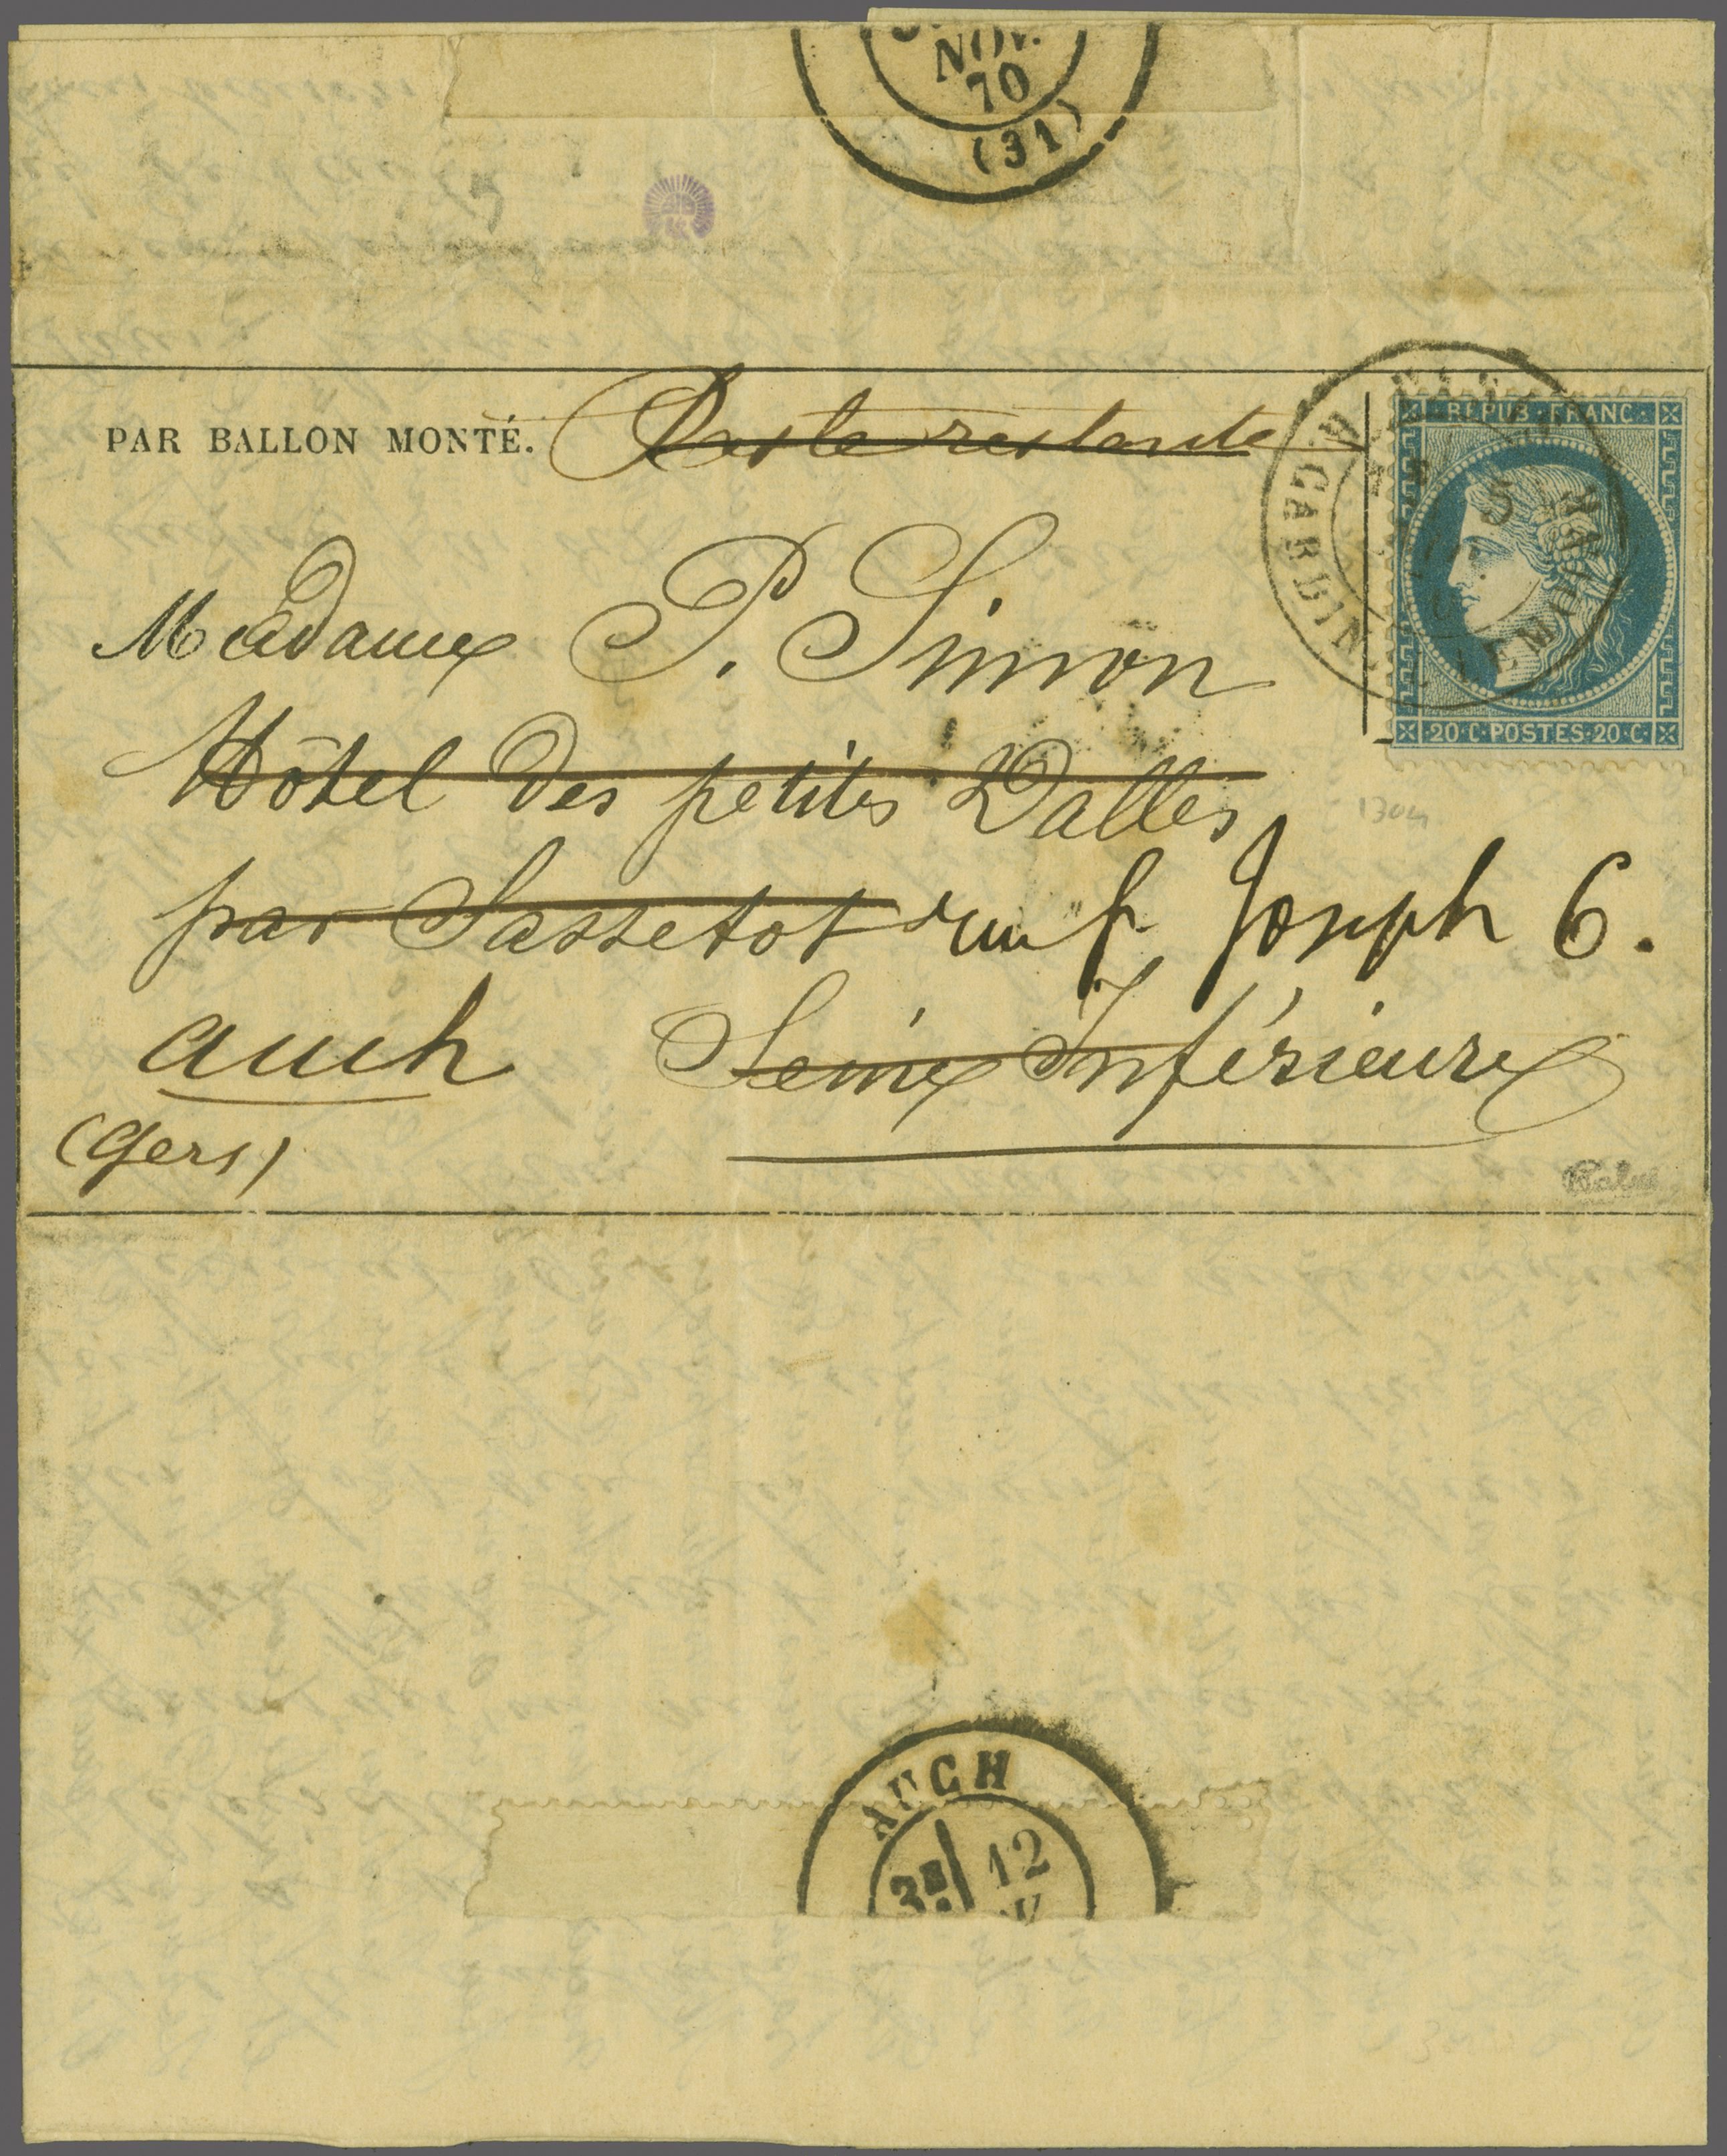 NOV.
70
(31)
PAR BALLON MONTÉ. Poste restante
REPUB·FRANC·
CARDINAL LEMOINE
5
20·C·POSTES·20·C
Madame P. Simon
Hôtel des petites Dalles
130g
par Sassetot rue St Joseph 6.
auch Seine Inférieure
(Gers)
Calves
AUCH
3E 12